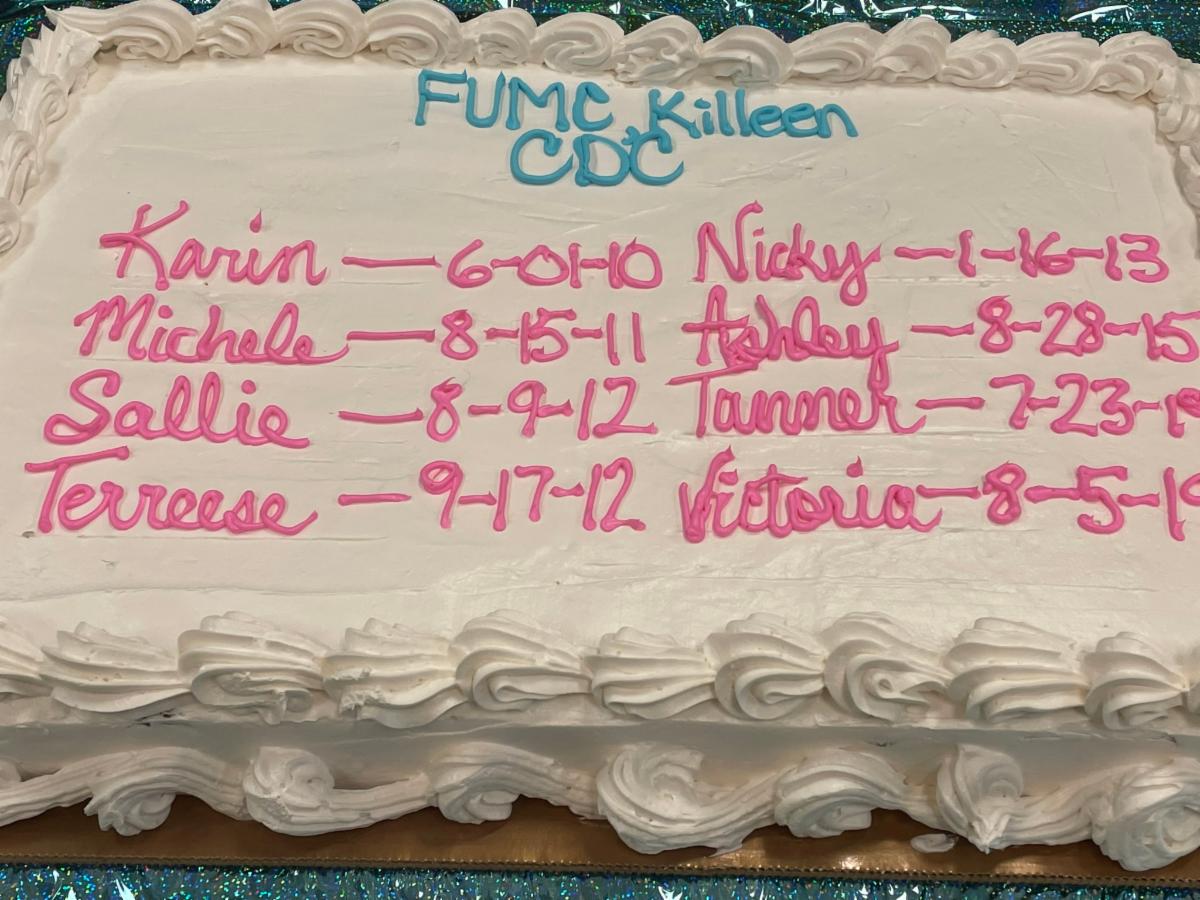 FUMC, Killeen
CDC
Karin — 6-01-10 Nicky — 1-16-13
Michele — 8-15-11 Ashley — 8-28-15
Sallie — 8-9-12 Tanner — 7-23-19
Terreese — 9-17-12 Victoria — 8-5-19